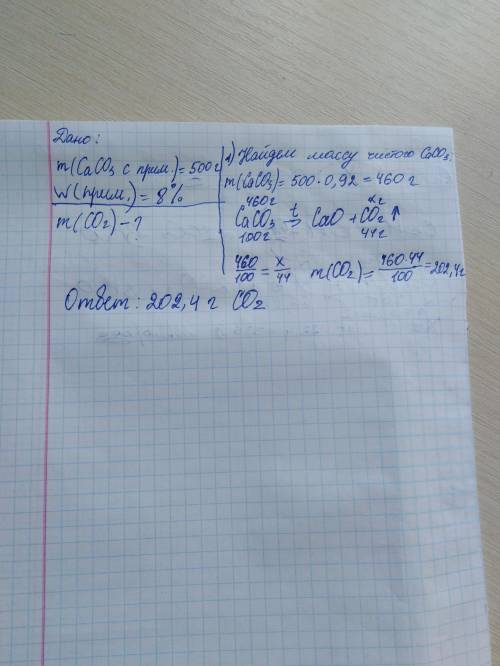 Дано:
m(CaCO₃ с прим.) = 500 г
W(прим.) = 8%
m(CO₂) - ?
1) Найдем массу чистого CaCO₃:
m(CaCO₃) = 500 · 0,92 = 460 г
460 г x г
CaCO₃ t→ CaO + CO₂ ↑
100 г 44 г
460/100 = x/44 m(CO₂) = 460·44/100 = 202,4 г
Ответ: 202,4 г CO₂